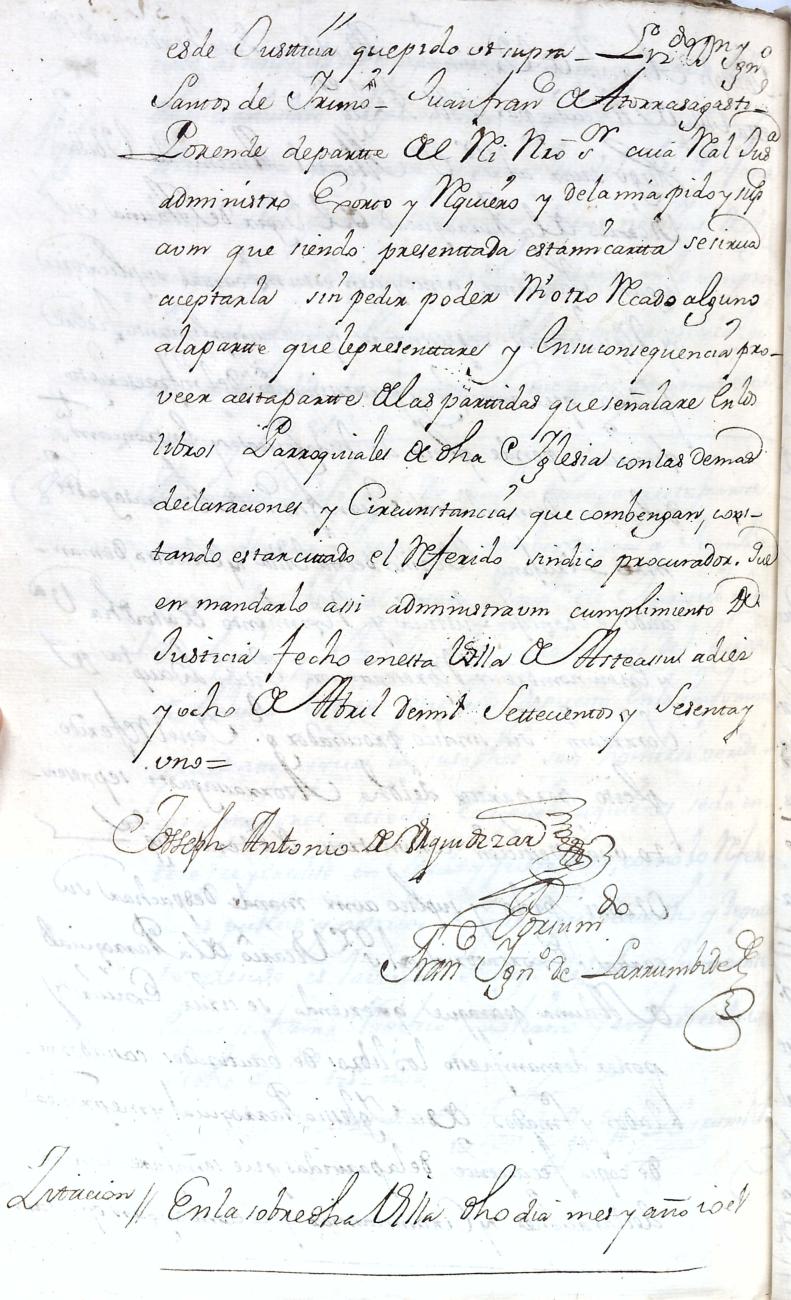 es de Justicia que pido ut supra - Lizdo Dn Ygno
Santos de Yrimo - Juan franco de Atorrasagasti -
Porende de partte del Rei Nro Sr cuia Real Jusa
administro Exorto y Requiero y de la mia pido y sup
avm que siendo presenttada esta mi cartta se sirva
aceptarla sin pedir poder Ni otro Rcado alguno
ala partte que le presenttare y En su consequencia pro-
veer a esta partte de las parttidas que señalare En los
libros Parroquiales de dha Yglesia con las demas
declaraciones y Circunstancias que combengan, cons-
tando estar cittado el Referido sindico procurador. Que
en mandarlo assi administra vm cumplimiento de
Justicia fecho en esta Villa de Asteassu a diez
y ocho de Abril de mil Settecientos y Sesenta y
uno =
Joseph Antonio de Eguidezar
Por su mdo
Franco Ygno de Larrumbide
Zitacion // En la sobredha Villa dho dia mes y año io el